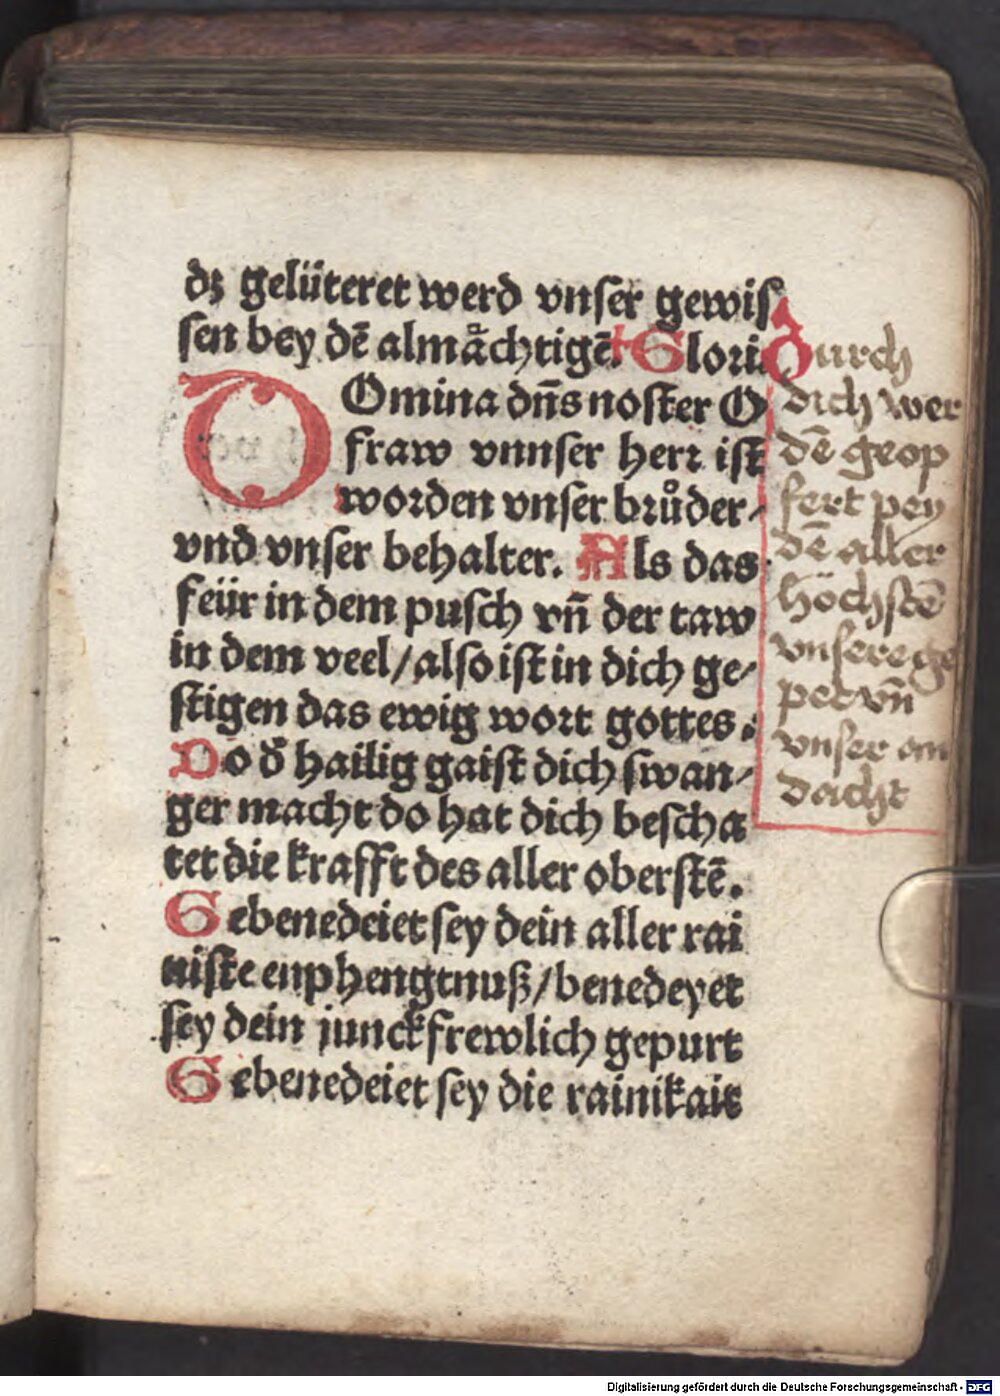 dz gelüteret werd vnser gewis
sen bey dē almaͤchtigē. Gloria
O Omina dn̄s noster O
fraw vnnser herr ist
worden vnser bruͦder/
vnd vnser behalter. Als das
feür in dem pusch vn̄ der taw
in dem veel/also ist in dich ge/
stigen das ewig wort gottes.
Do d̄ hailig gaist dich swan/
ger macht do hat dich bescha
tet die krafft des aller oberstē.
Gebenedeiet sey dein aller rai
niste enphengknuß/benedeyet
sey dein junckfrewlich gepurt
Gebenedeiet sey die rainikait
Durch
dich wer
dē geop
fert pey
dē aller
höchstē
vnsere ge
pet vn̄
vnser an
dacht
Digitalisierung gefördert durch die Deutsche Forschungsgemeinschaft - DFG